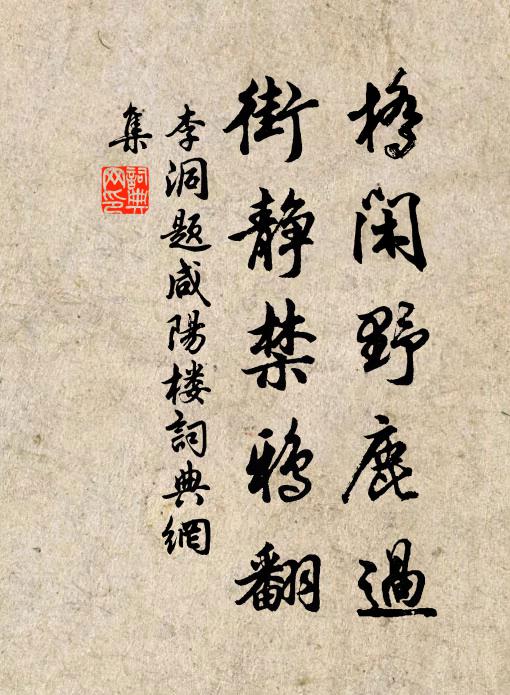 橋閑野鹿過
街静禁鴉翻
李洞題咸陽楼詞典網
集
詞典網印